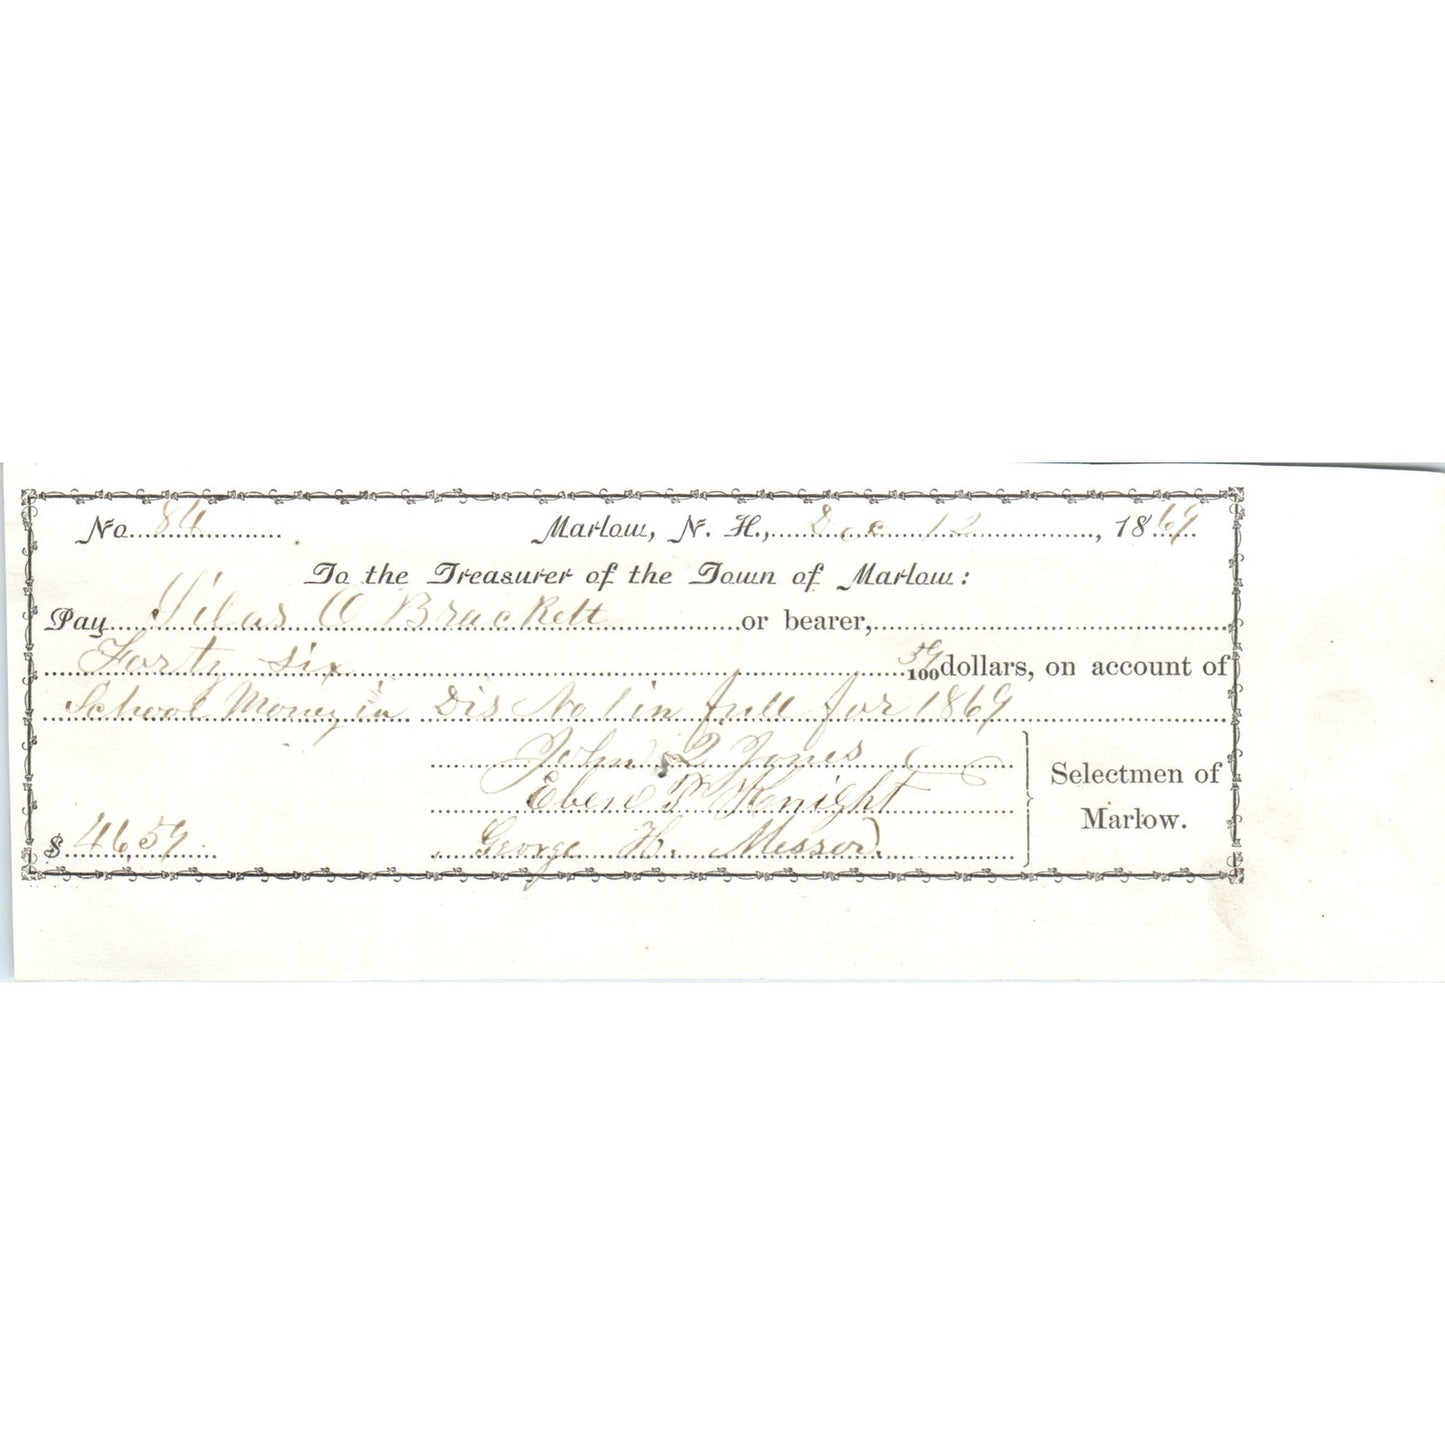 No. 84 Marlow, N. H., Dec 12, 1869
To the Treasurer of the Town of Marlow:
Pay Silas O Brackett or bearer,
Forty six 59/100 dollars, on account of
School Money in Dis No 1 in full for 1869
John Q Jones
Eben P Knight
George H. Messer
Selectmen of
Marlow.
$ 46,59